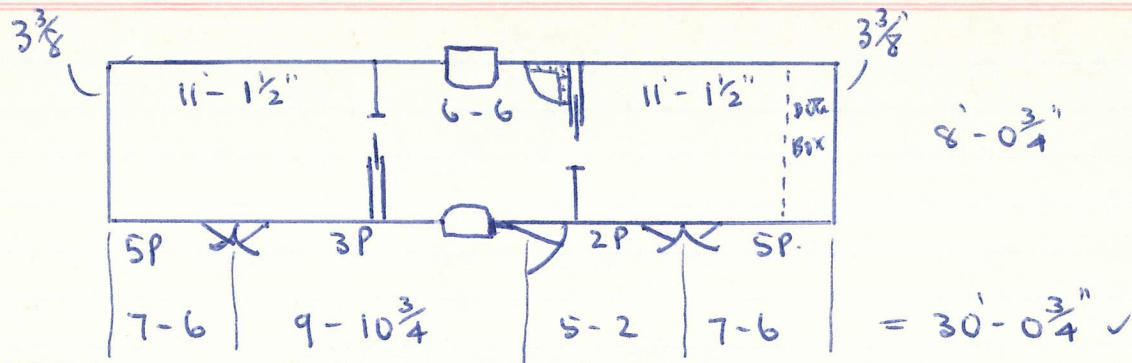 3 3/8 3 3/8"
11'- 1 1/2" 6-6 11'- 1 1/2" 8'- 0 3/4"
BOX
5P 3P 2P 5P.
7-6 9-10 3/4 5-2 7-6 = 30'- 0 3/4" ✓